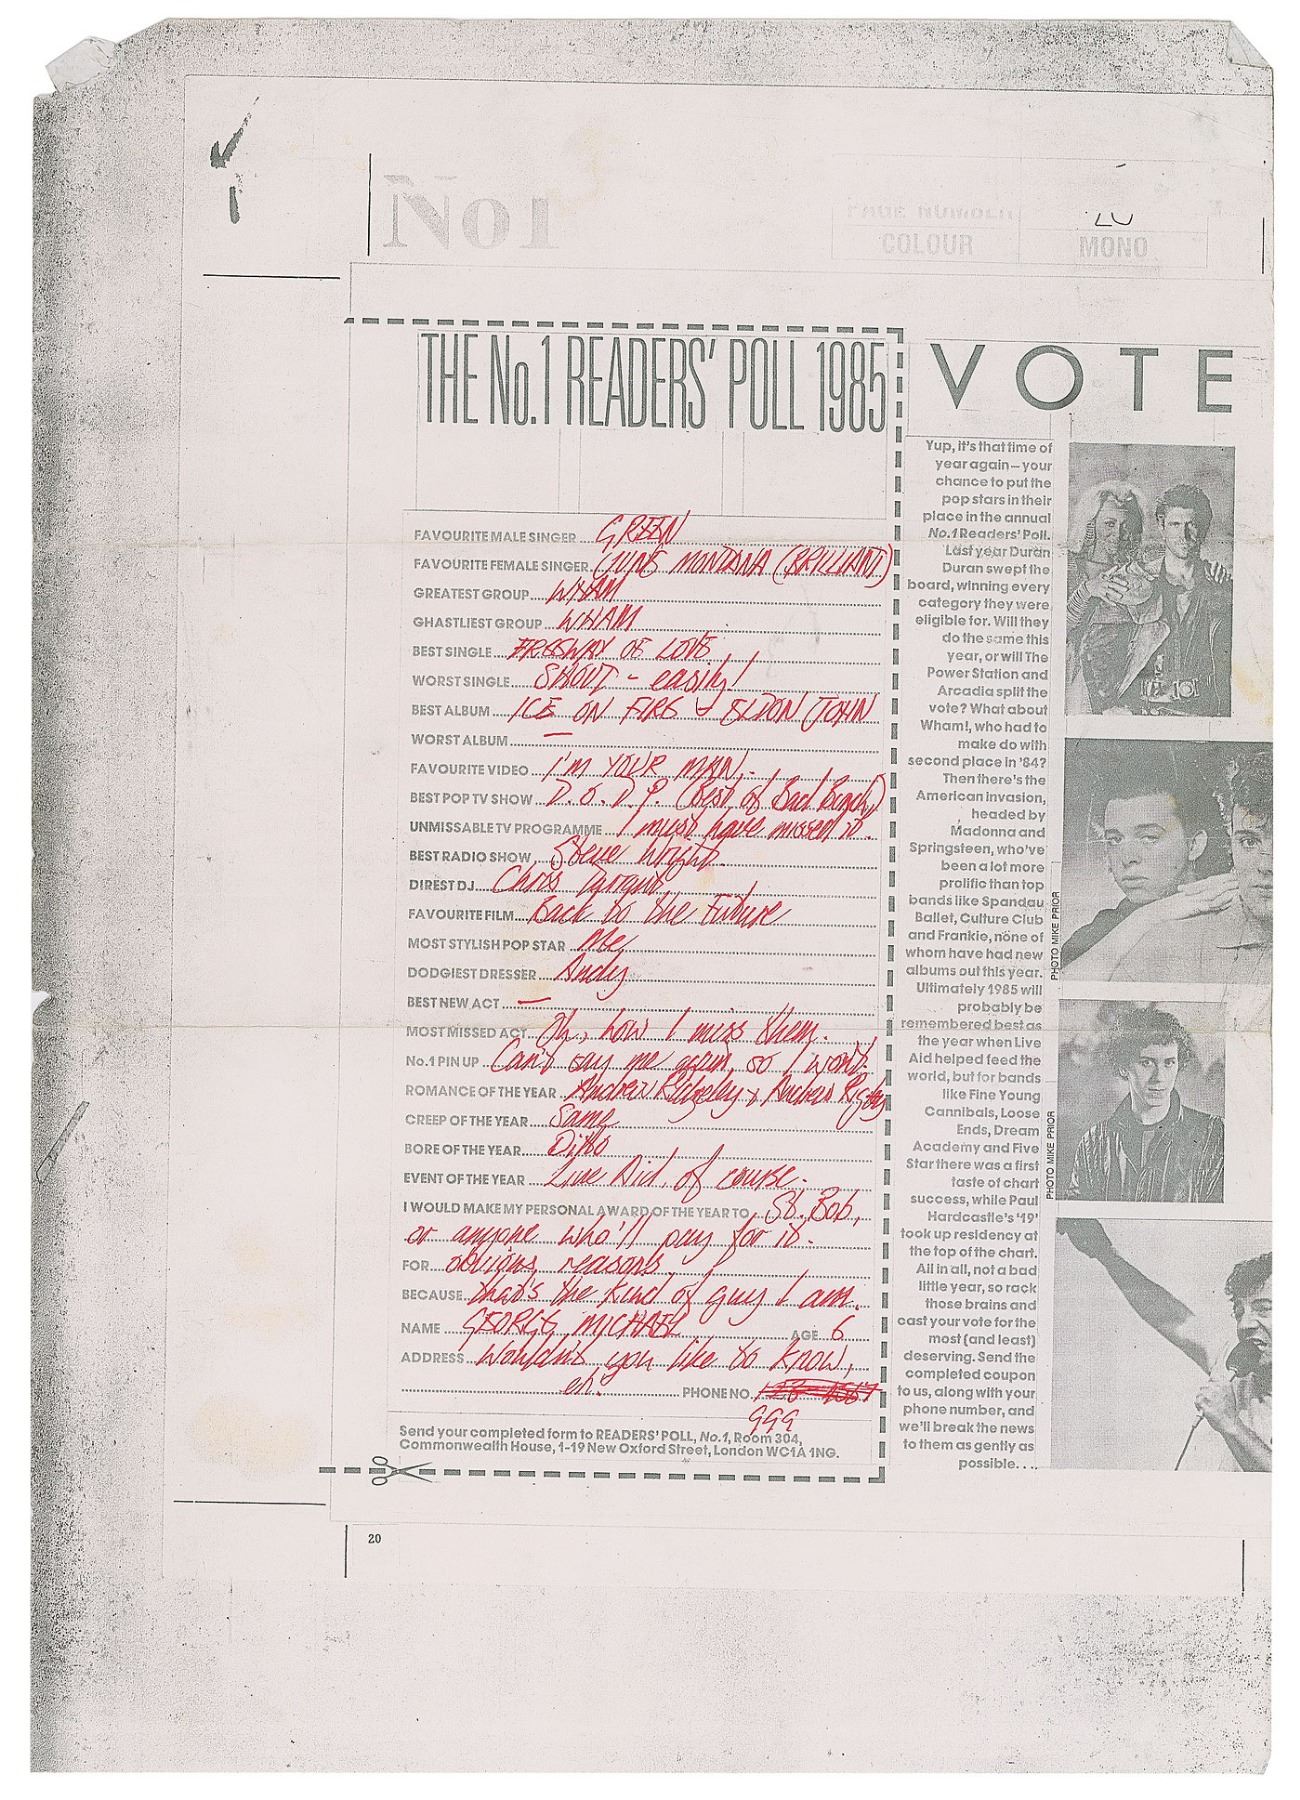 No1
PAGE NUMBER
20
COLOUR
MONO
THE No.1 READERS' POLL 1985
FAVOURITE MALE SINGER GREEN
FAVOURITE FEMALE SINGER JUNE MONTANA (BRILLIANT)
GREATEST GROUP WHAM
GHASTLIEST GROUP WHAM
BEST SINGLE FREEWAY OF LOVE
WORST SINGLE SHOUT - easily!
BEST ALBUM ICE ON FIRE - ELTON JOHN
WORST ALBUM —
FAVOURITE VIDEO I'M YOUR MAN.
BEST POP TV SHOW T.O.T.P. (Best of Bad Bunch)
UNMISSABLE TV PROGRAMME I must have missed it.
BEST RADIO SHOW Steve Wright.
DIREST DJ Chris Tarrant.
FAVOURITE FILM Back to the Future
MOST STYLISH POP STAR Me
DODGIEST DRESSER Andy
BEST NEW ACT —
MOST MISSED ACT Oh, how I miss them.
No.1 PIN UP Can't say me again, so I won't.
ROMANCE OF THE YEAR Andrew Ridgeley & Andrew Rigby
CREEP OF THE YEAR Same
BORE OF THE YEAR Ditto
EVENT OF THE YEAR Live Aid, of course.
I WOULD MAKE MY PERSONAL AWARD OF THE YEAR TO St. Bob,
or anyone who'll pay for it.
FOR obvious reasons
BECAUSE that's the kind of guy I am.
NAME GEORGE MICHAEL AGE 6
ADDRESS Wouldn't you like to know,
eh? PHONE NO. 123 4567
999
Send your completed form to READERS' POLL, No.1, Room 304,
Commonwealth House, 1-19 New Oxford Street, London WC1A 1NG.
20
VOTE
Yup, it's that time of
year again – your
chance to put the
pop stars in their
place in the annual
No.1 Readers' Poll.
Last year Duran
Duran swept the
board, winning every
category they were
eligible for. Will they
do the same this
year, or will The
Power Station and
Arcadia split the
vote? What about
Wham!, who had to
make do with
second place in '84?
Then there's the
American invasion,
headed by
Madonna and
Springsteen, who've
been a lot more
prolific than top
bands like Spandau
Ballet, Culture Club
and Frankie, none of
whom have had new
albums out this year.
Ultimately 1985 will
probably be
remembered best as
the year when Live
Aid helped feed the
world, but for bands
like Fine Young
Cannibals, Loose
Ends, Dream
Academy and Five
Star there was a first
taste of chart
success, while Paul
Hardcastle's '19'
took up residency at
the top of the chart.
All in all, not a bad
little year, so rack
those brains and
cast your vote for the
most (and least)
deserving. Send the
completed coupon
to us, along with your
phone number, and
we'll break the news
to them as gently as
possible...
PHOTO MIKE PRIOR
PHOTO MIKE PRIOR